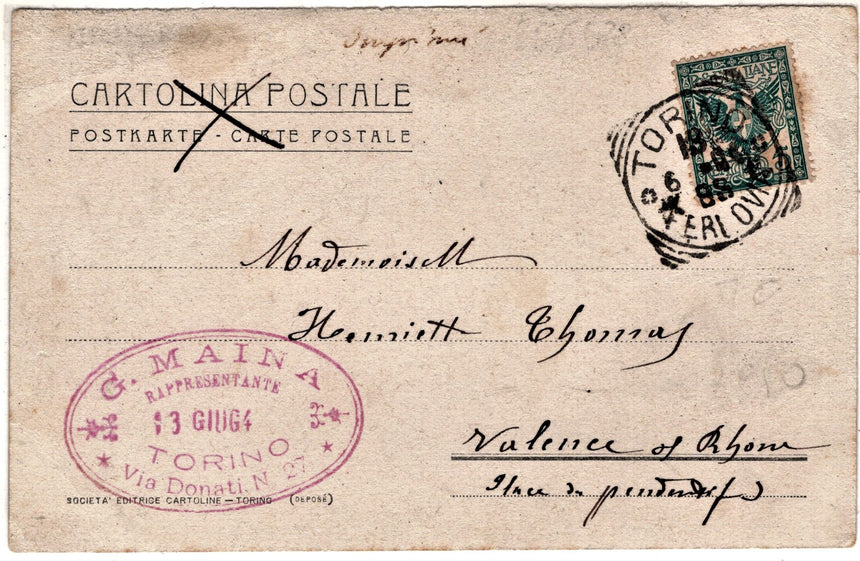 Imprimé
CARTOLINA POSTALE
POSTKARTE - CARTE POSTALE
TORINO
FERROVIA
Mademoisell
Henriett Thomas
Valence s/ Rhone
Place du pendentif
G. MAINA
RAPPRESENTANTE
13 GIUG4
TORINO
Via Donati, N. 27
SOCIETA' EDITRICE CARTOLINE - TORINO (DEPOSÉ)